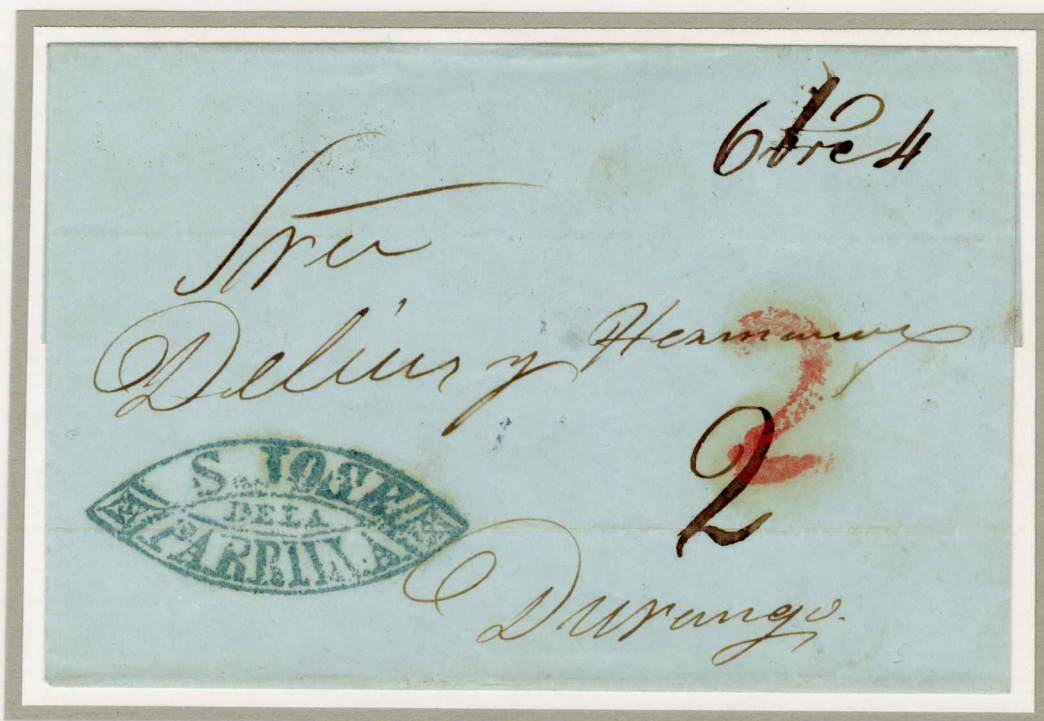 Sres
Delius y Hermanos
2
2
S. JOSE
DE LA
PARRILLA
Durango.